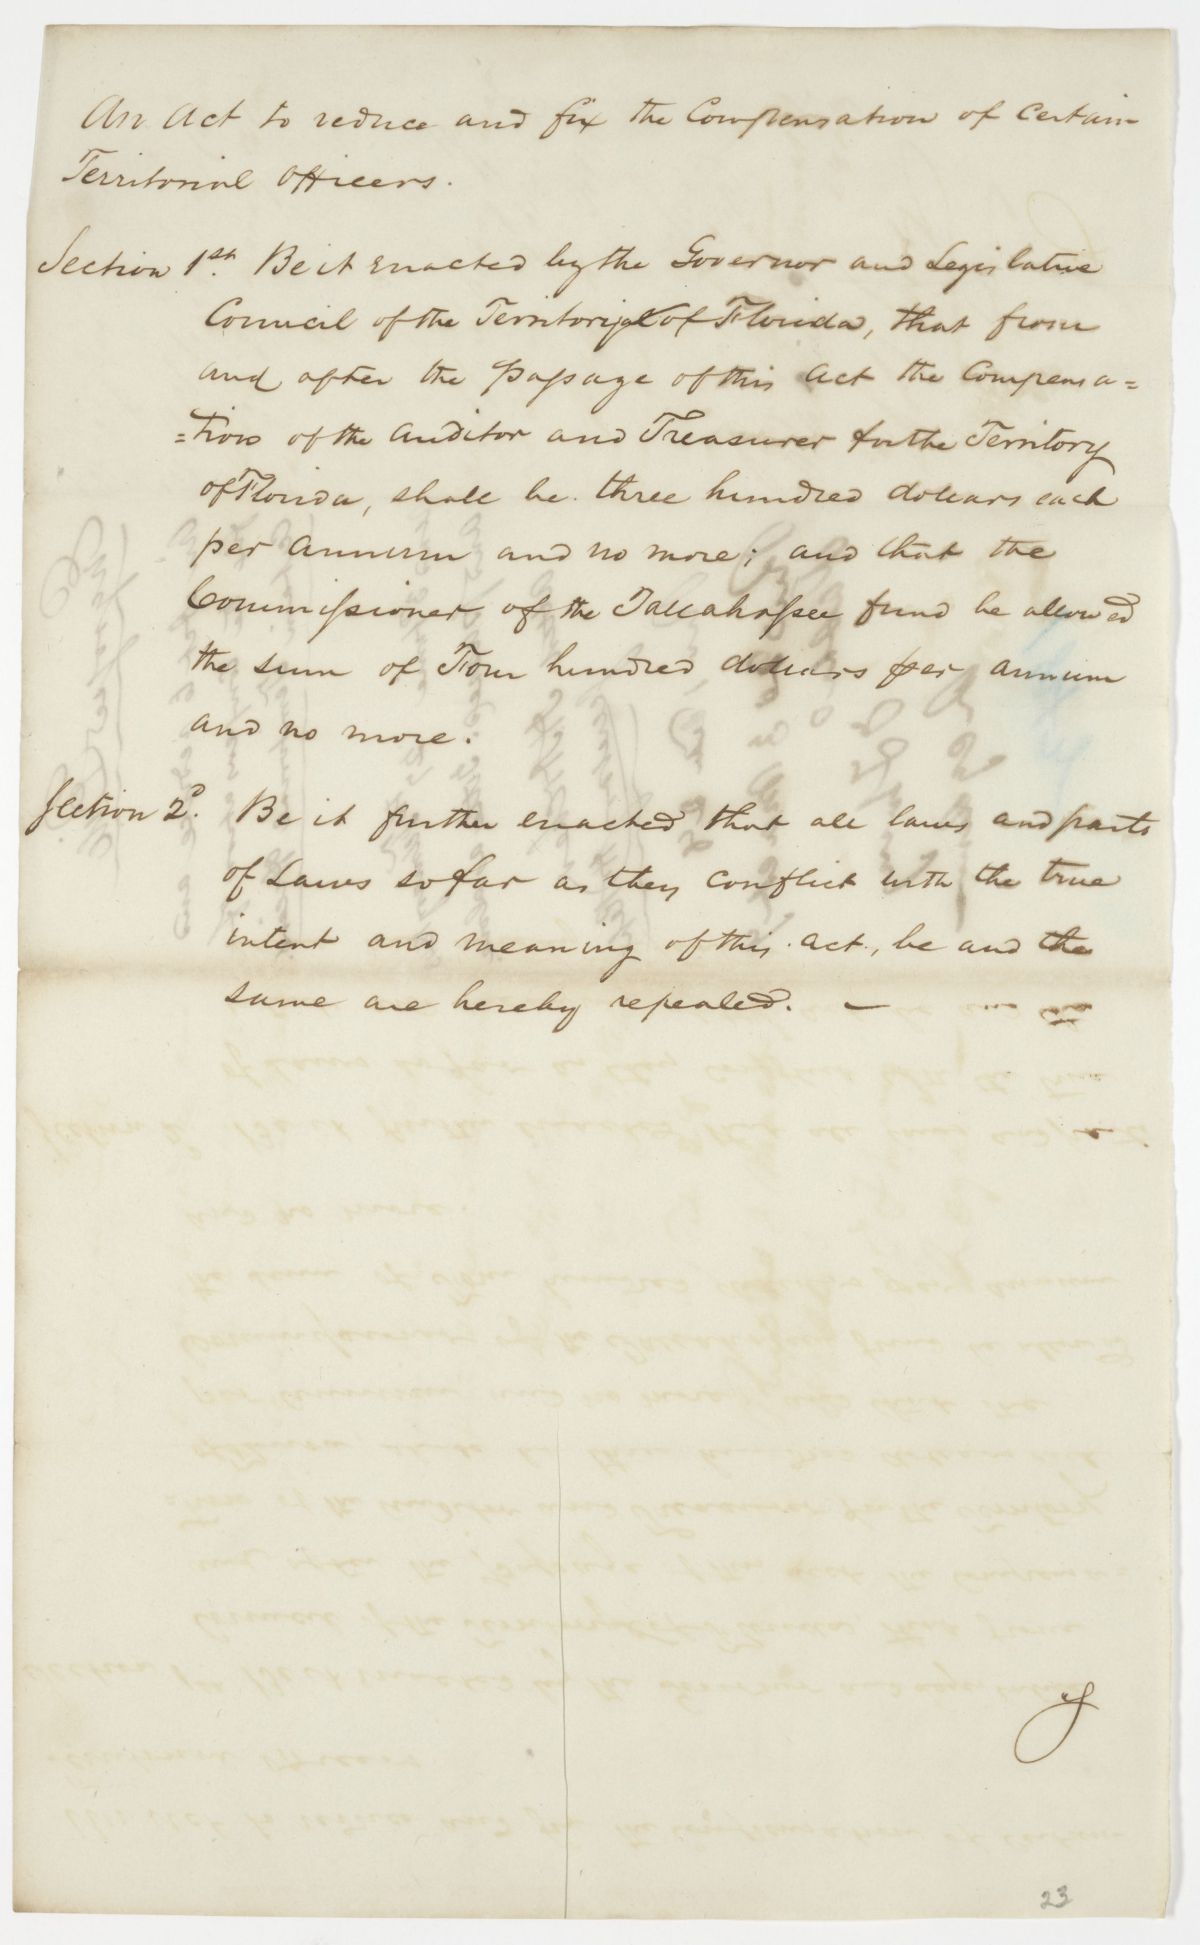 An Act to reduce and fix the Compensation of Certain
Territorial Officers.
Section 1st. Be it enacted by the Governor and Legislative
Council of the Territory of Florida, that from
and after the passage of this Act the Compensa=
=tion of the Auditor and Treasurer for the Territory
of Florida, shall be three hundred dollars each
per Annum and no more; and that the
Commissioner of the Tallahassee fund be allowed
the sum of Four hundred dollars per annum
and no more.
Section 2d. Be it further enacted that all laws and parts
of Laws so far as they conflict with the true
intent and meaning of this act, be and the
same are hereby repealed. —
23